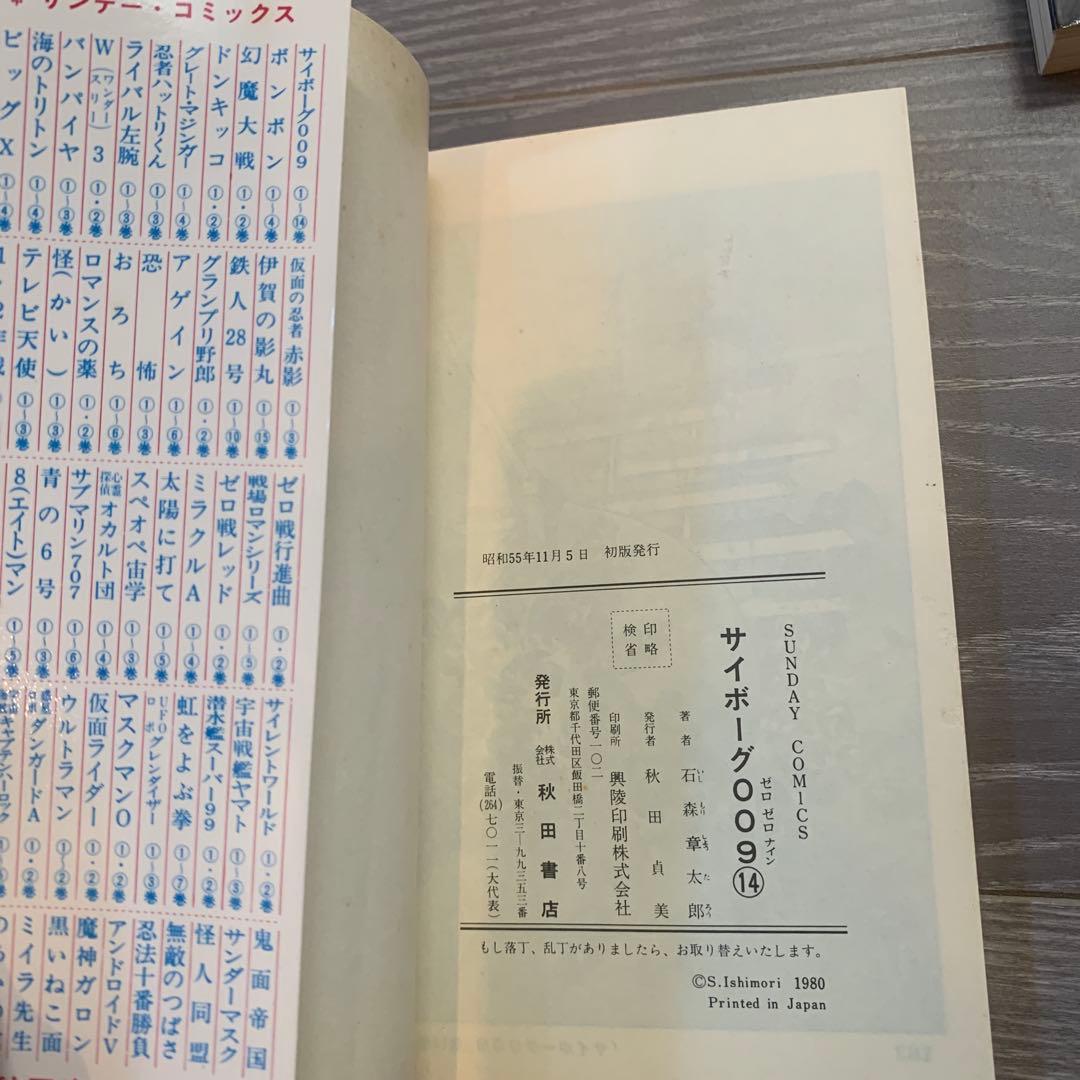 サンデー・コミックス
サイボーグ009 ①〜⑭巻
ボンボン ①〜④巻
幻魔大戦 ①・②巻
ドンキッコ ①・②巻
グレート・マジンガー ①〜④巻
忍者ハットリくん ①〜③巻
ライバル左腕 ①〜③巻
W(ワンダースリー)3 ①・②巻
バンパイヤ ①〜③巻
海のトリトン ①〜④巻
ビッグX ①〜④巻
仮面の忍者 赤影 ①〜③巻
伊賀の影丸 ①〜⑮巻
鉄人28号 ①〜⑩巻
グランプリ野郎 ①・②巻
アゲイン ①〜⑥巻
恐怖 ①〜③巻
おろち ①〜⑥巻
ロマンスの薬 ①・②巻
怪(かい) ①〜③巻
テレビ天使 ①〜③巻
ゼロ戦行進曲 ①・②巻
戦場ロマンシリーズ ①〜⑤巻
ゼロ戦レッド ①・②巻
ミラクルA ①〜④巻
太陽に打て ①〜⑤巻
スペオペ宙学 ①〜③巻
心霊探偵オカルト団 ①〜④巻
サブマリン707 ①〜⑥巻
青の6号 ①〜③巻
8(エイト)マン ①〜⑤巻
サイレントワールド ①・②巻
宇宙戦艦ヤマト ①〜③巻
潜水艦スーパー99 ①・②巻
虹をよぶ拳 ①〜⑦巻
UFOロボグレンダイザー ①〜③巻
マスクマン0 ①・②巻
仮面ライダー ①・②巻
ウルトラマン ①〜②巻
惑星ロボダンガードA ①・②巻
キャプテンハーロック
鬼面帝国
サンダーマスク
怪人同盟
無敵のつばさ
忍法十番勝負
アンドロイドV
魔神ガロン
黒いねこ面
ミイラ先生
昭和55年11月5日 初版発行
SUNDAY COMICS
サイボーグ009⑭
ゼロ ゼロ ナイン
著者 石森章太郎
いし もり しょう た ろう
発行者 秋田貞美
印刷所 興陵印刷株式会社
検印省略
郵便番号一〇二
東京都千代田区飯田橋二丁目十番八号
発行所 株式会社 秋田書店
振替・東京三―九九三五三番
電話(264)七〇一一(大代表)
もし落丁、乱丁がありましたら、お取り替えいたします。
©S.Ishimori 1980
Printed in Japan